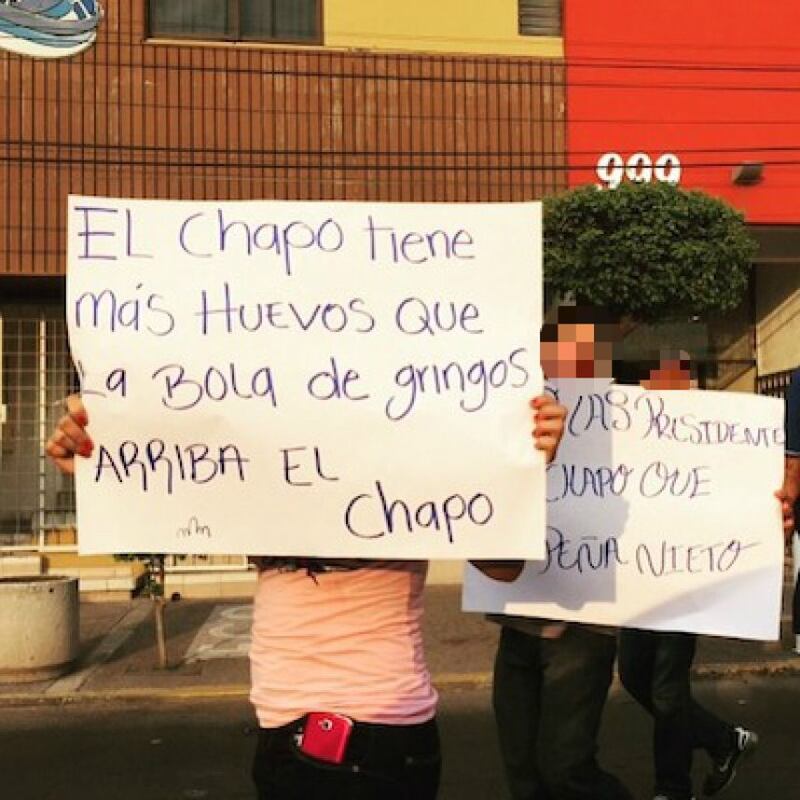 EL Chapo tiene
más HUEVOS QUE
La BOLa de gringos
ARRIBA EL
Chapo
PRESIDENTE
CHAPO QUE
PEÑA NIETO